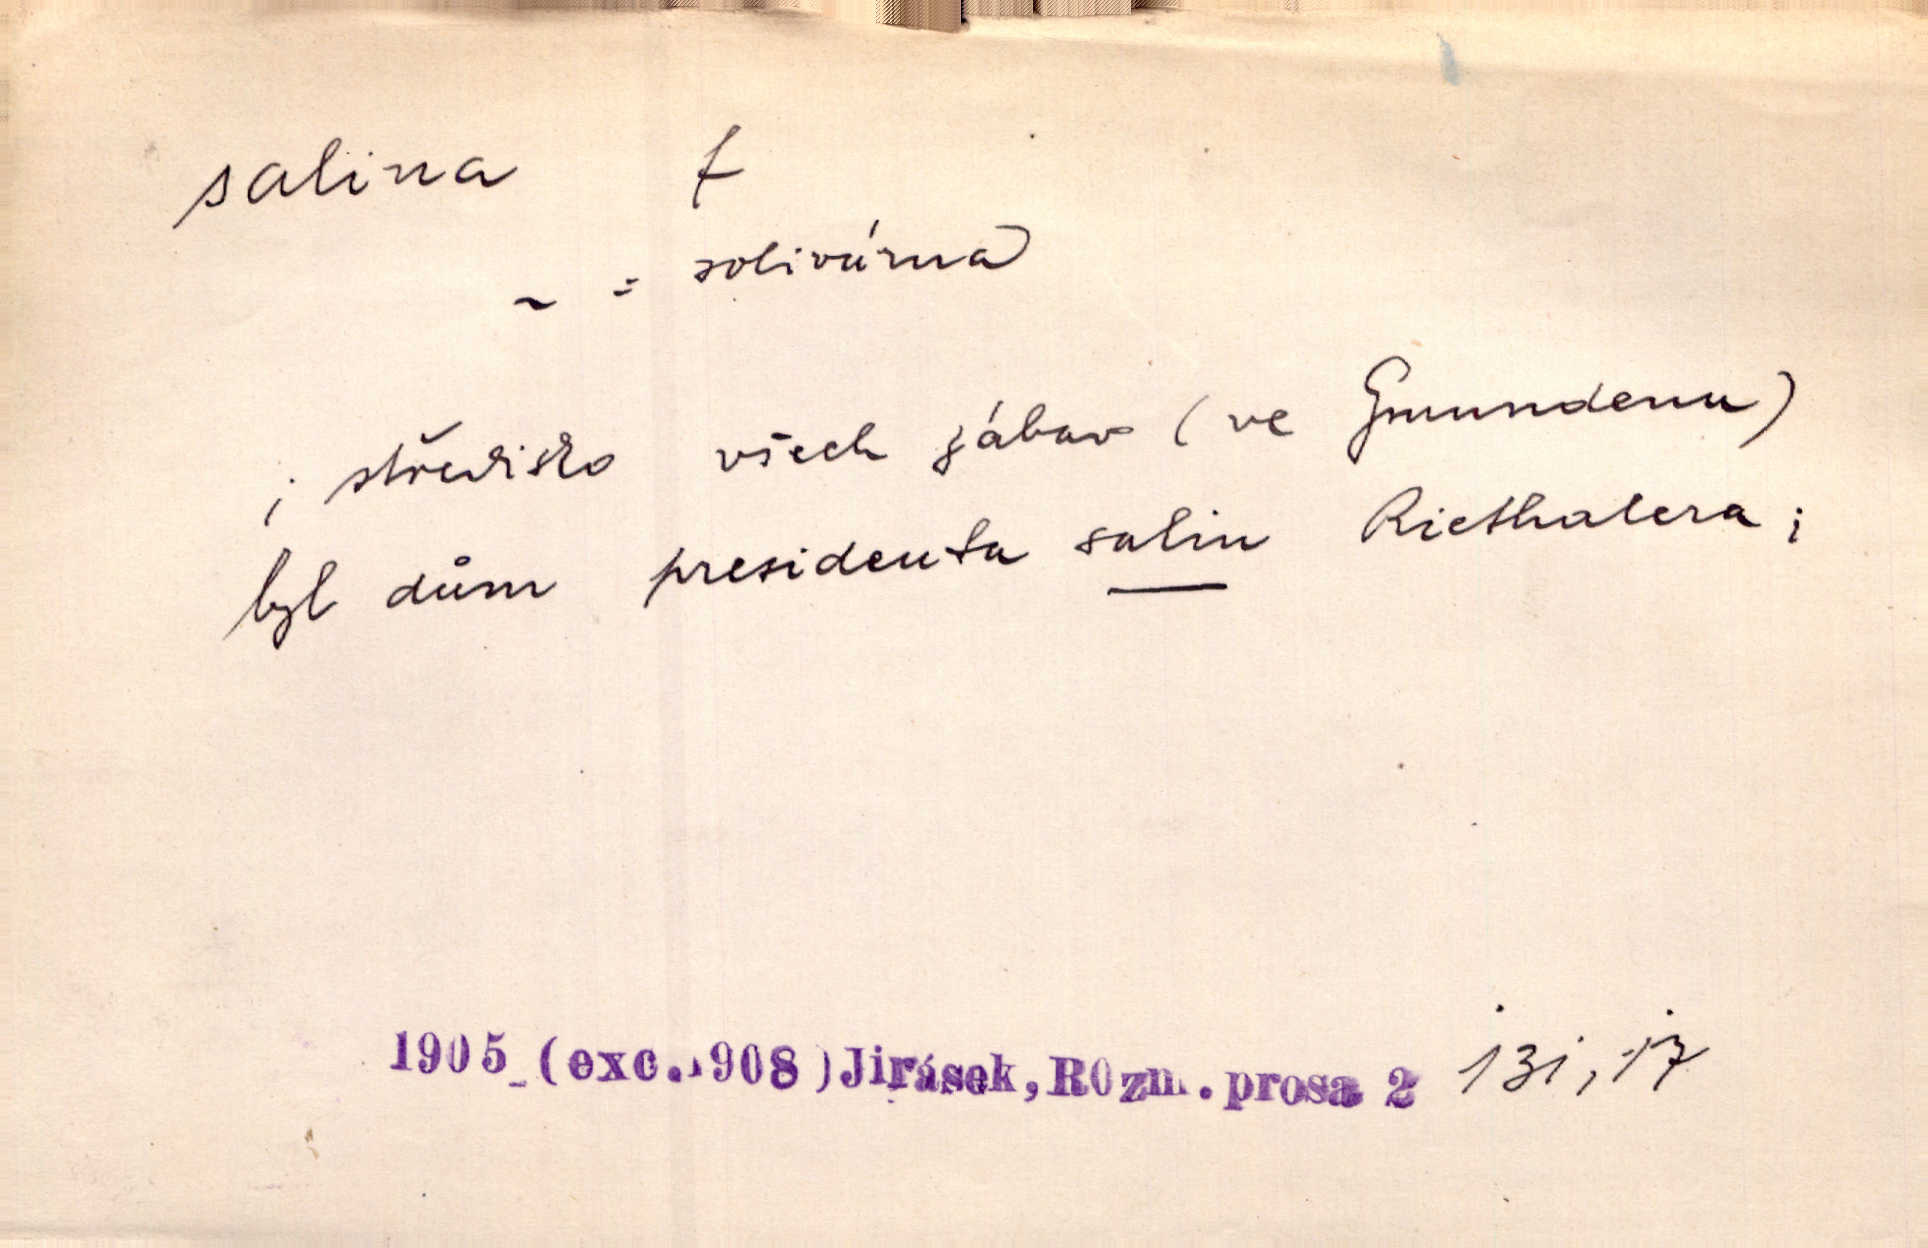 salina f
~ = solivárna
; středisko všech zábav (ve Gmundenu)
byl dům presidenta salin Riethalera;
1905_(exc.1908)Jirásek,ROzm.prosa 2 131,17